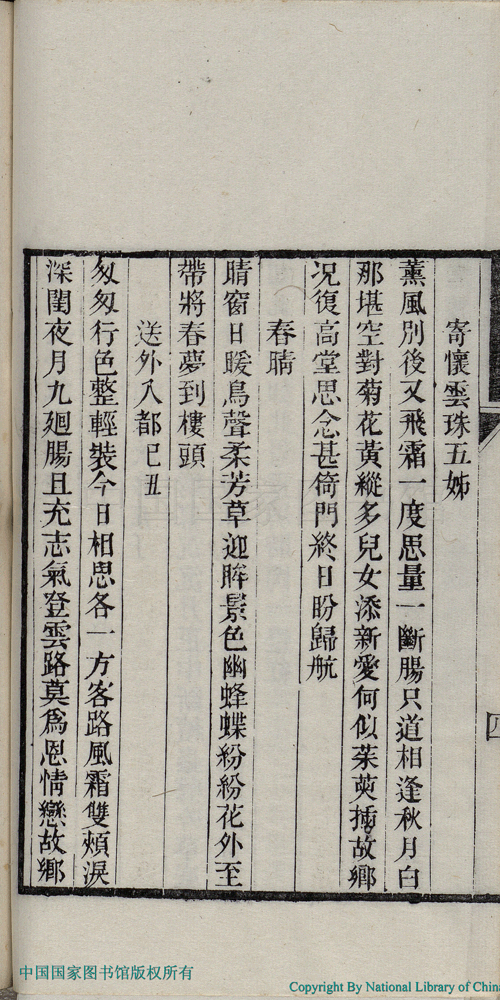 寄懷雲珠五姊
薰風別後又飛霜一度思量一斷腸只道相逢秋月白
那堪空對菊花黃縱多兒女添新愛何似茱萸揷故鄉
况復高堂思念甚倚門終日盼歸航
春晴
晴窗日暖鳥聲柔芳草迎眸景色幽蜂蝶紛紛花外至
帶將春夢到樓頭
送外入都己丑
匆匆行色整輕裝今日相思各一方客路風霜雙頰淚
深閨夜月九廻腸且充志氣登雲路莫爲恩情戀故鄉
四
中国国家图书馆版权所有
Copyright By National Library of Chin